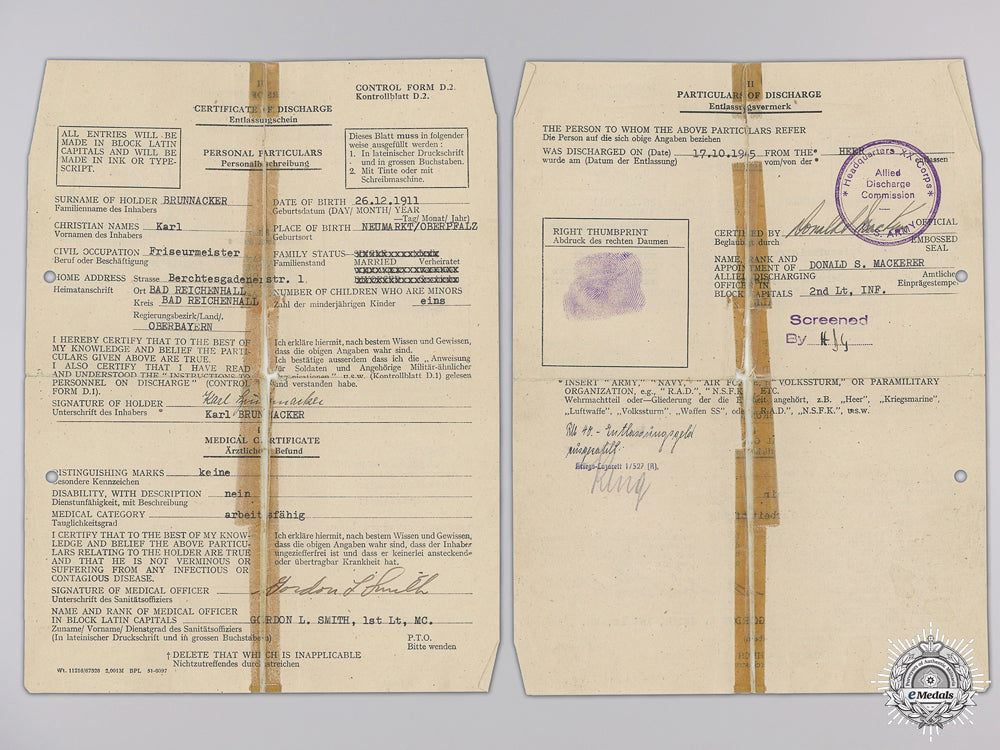 CONTROL FORM D.2.
Kontrollblatt D.2.
CERTIFICATE OF DISCHARGE
Entlassungschein
ALL ENTRIES WILL BE
MADE IN BLOCK LATIN
CAPITALS AND WILL BE
MADE IN INK OR TYPE-
SCRIPT.
PERSONAL PARTICULARS
Personalbeschreibung
Dieses Blatt muss in folgender
weise ausgefüllt werden :
1. In lateinischer Druckschrift
und in grossen Buchstaben.
2. Mit Tinte oder mit
Schreibmaschine.
SURNAME OF HOLDER BRUNNACKER
Familienname des Inhabers
DATE OF BIRTH 26.12.1911
Geburtsdatum (DAY/ MONTH/ YEAR
—Tag/ Monat/ Jahr)
CHRISTIAN NAMES Karl
Vornamen des Inhabers
PLACE OF BIRTH NEUMARKT/OBERPFALZ
Geburtsort
CIVIL OCCUPATION Friseurmeister
Beruf oder Beschäftigung
FAMILY STATUS—
Familienstand MARRIED Verheiratet
HOME ADDRESS Strasse Berchtesgadenerstr. 1.
Heimatanschrift Ort BAD REICHENHALL
Kreis BAD REICHENHALL
Regierungsbezirk/Land/.
OBERBAYERN
NUMBER OF CHILDREN WHO ARE MINORS
Zahl der minderjährigen Kinder eins
I HEREBY CERTIFY THAT TO THE BEST OF
MY KNOWLEDGE AND BELIEF THE PARTI-
CULARS GIVEN ABOVE ARE TRUE.
I ALSO CERTIFY THAT I HAVE READ
AND UNDERSTOOD THE "INSTRUCTIONS TO
PERSONNEL ON DISCHARGE" (CONTROL
FORM D.1).
Ich erkläre hiermit, nach bestem Wissen und Gewissen,
dass die obigen Angaben wahr sind.
Ich bestätige ausserdem dass ich die „Anweisung
für Soldaten und Angehörige Militär-ähnlicher
Organisationen" u.s.w. (Kontrollblatt D.1) gelesen
und verstanden habe.
SIGNATURE OF HOLDER Karl Brunnacker
Unterschrift des Inhabers Karl BRUNNACKER
I
MEDICAL CERTIFICATE
Ärztlicher Befund
DISTINGUISHING MARKS keine
Besondere Kennzeichen
DISABILITY, WITH DESCRIPTION nein
Dienstunfähigkeit, mit Beschreibung
MEDICAL CATEGORY arbeitsfähig
Tauglichkeitsgrad
I CERTIFY THAT TO THE BEST OF MY KNOW-
LEDGE AND BELIEF THE ABOVE PARTICU-
LARS RELATING TO THE HOLDER ARE TRUE
AND THAT HE IS NOT VERMINOUS OR
SUFFERING FROM ANY INFECTIOUS OR
CONTAGIOUS DISEASE.
Ich erkläre hiermit, nach bestem Wissen und Gewissen,
dass die obigen Angaben wahr sind, dass der Inhaber
ungezieferfrei ist und dass er keinerlei ansteckende
oder übertragbar Krankheit hat.
SIGNATURE OF MEDICAL OFFICER Gordon L Smith
Unterschrift des Sanitätsoffiziers
NAME AND RANK OF MEDICAL OFFICER
IN BLOCK LATIN CAPITALS GORDON L. SMITH, 1st Lt, MC.
Zuname/ Vorname/ Dienstgrad des Sanitätsoffiziers
(In lateinischer Druckschrift und in grossen Buchstaben)
P.T.O.
Bitte wenden
† DELETE THAT WHICH IS INAPPLICABLE
Nichtzutreffendes durchstreichen
II
PARTICULARS OF DISCHARGE
Entlassungsvermerk
THE PERSON TO WHOM THE ABOVE PARTICULARS REFER
Die Person auf die sich obige Angaben beziehen
WAS DISCHARGED ON (Date) 17.10.1945 FROM THE* HEER
wurde am (Datum der Entlassung) vom/von der* entlassen
Headquarters XX Corps
Allied
Discharge
Commission
U.S. ARMY
RIGHT THUMBPRINT
Abdruck des rechten Daumen
CERTIFIED BY Donald S Mackerer
Beglaubigt durch
OFFICIAL
EMBOSSED
SEAL
NAME, RANK AND
APPOINTMENT OF
ALLIED DISCHARGING
OFFICER IN
BLOCK CAPITALS
DONALD S. MACKERER
2nd Lt, INF.
Amtliche
Einprägestempel
Screened
By
* INSERT "ARMY," "NAVY," "AIR FORCE," "VOLKSSTURM," OR PARAMILITARY
ORGANIZATION, e.g., "R.A.D.," "N.S.F.K.," ETC.
Wehrmachtteil oder—Gliederung der die Einheit angehört, z.B. „Heer", „Kriegsmarine",
„Luftwaffe", „Volkssturm", „Waffen SS", oder „R.A.D.", „N.S.F.K.", u.s.w.
Entlassungsgeld
Kriegs-Lazarett 1/527 (R).
eMedals